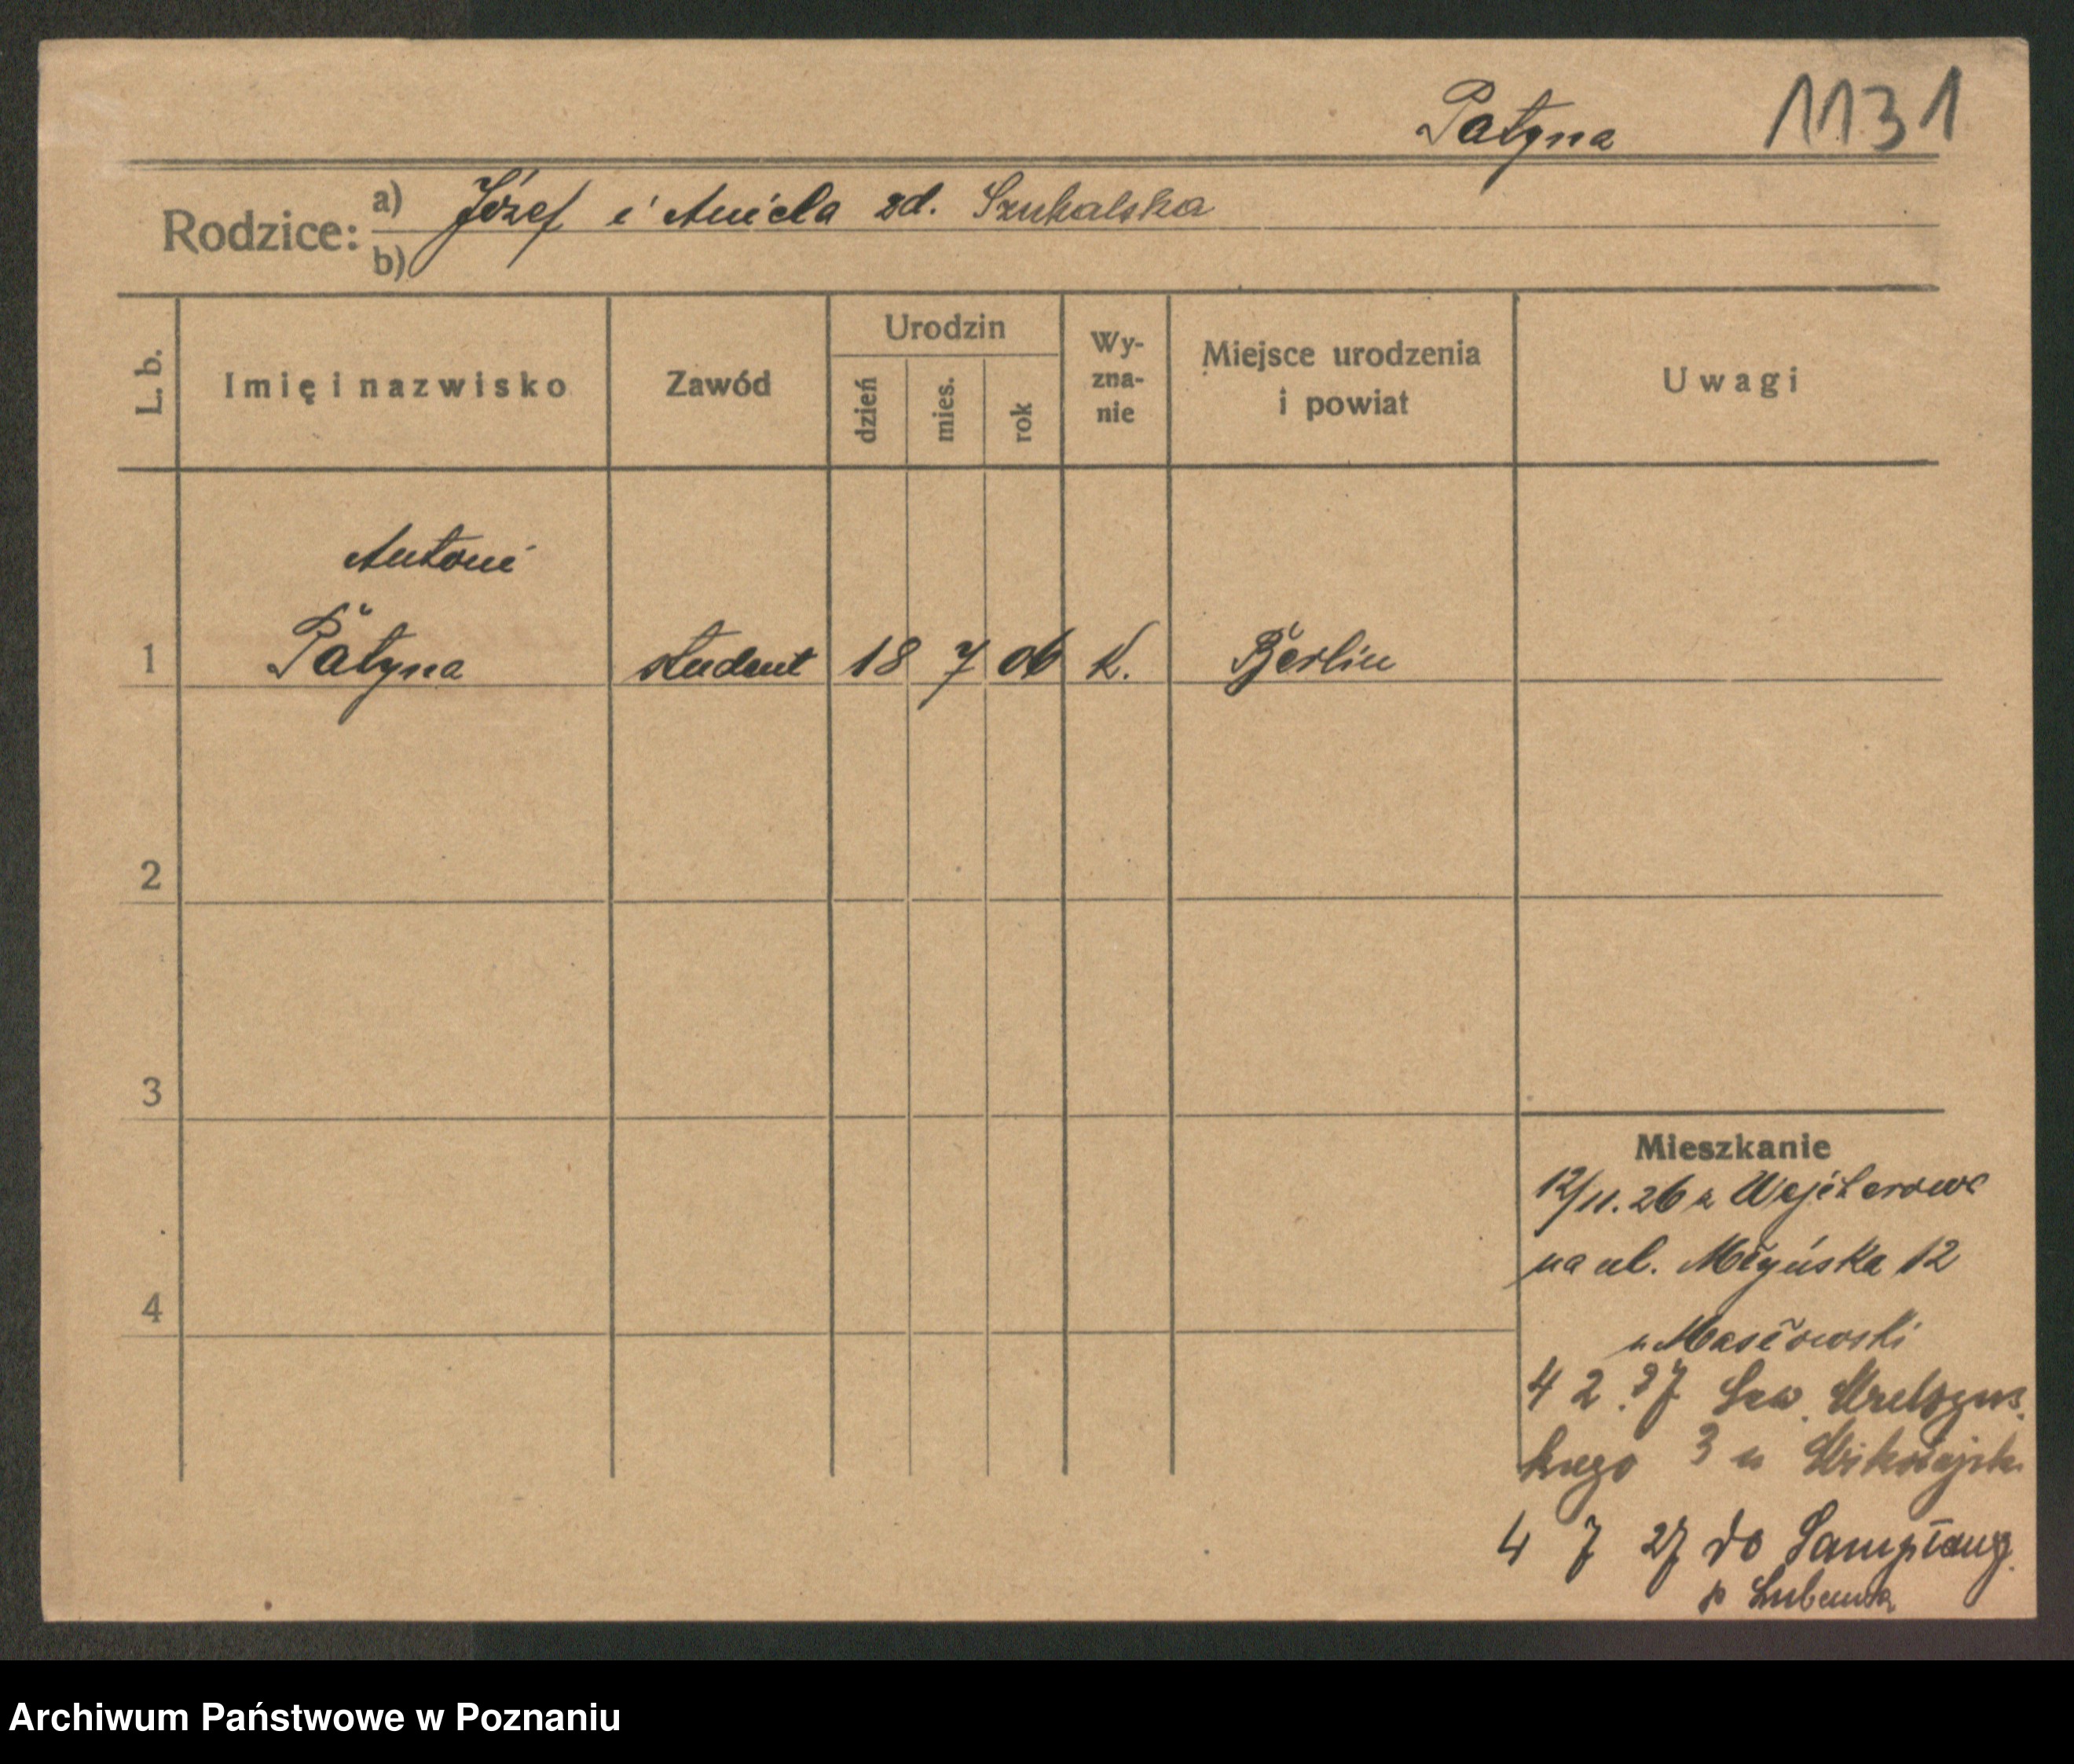 Patyna 1131
Rodzice: a) Józef i Aniela zd. Szuhalska
b)
L. b. Imię i nazwisko Zawód Urodzin dzień mies. rok Wy-zna-nie Miejsce urodzenia i powiat Uwagi
Antoni
1 Patyna student 18 7 06 K. Berlin
2
3
Mieszkanie
12/11.26 z Wejherowa
na ul. Młyńska 12
4
u Masłowski
4 2 27
3 u
4 7 27 do
p Lubawa
Archiwum Państwowe w Poznaniu